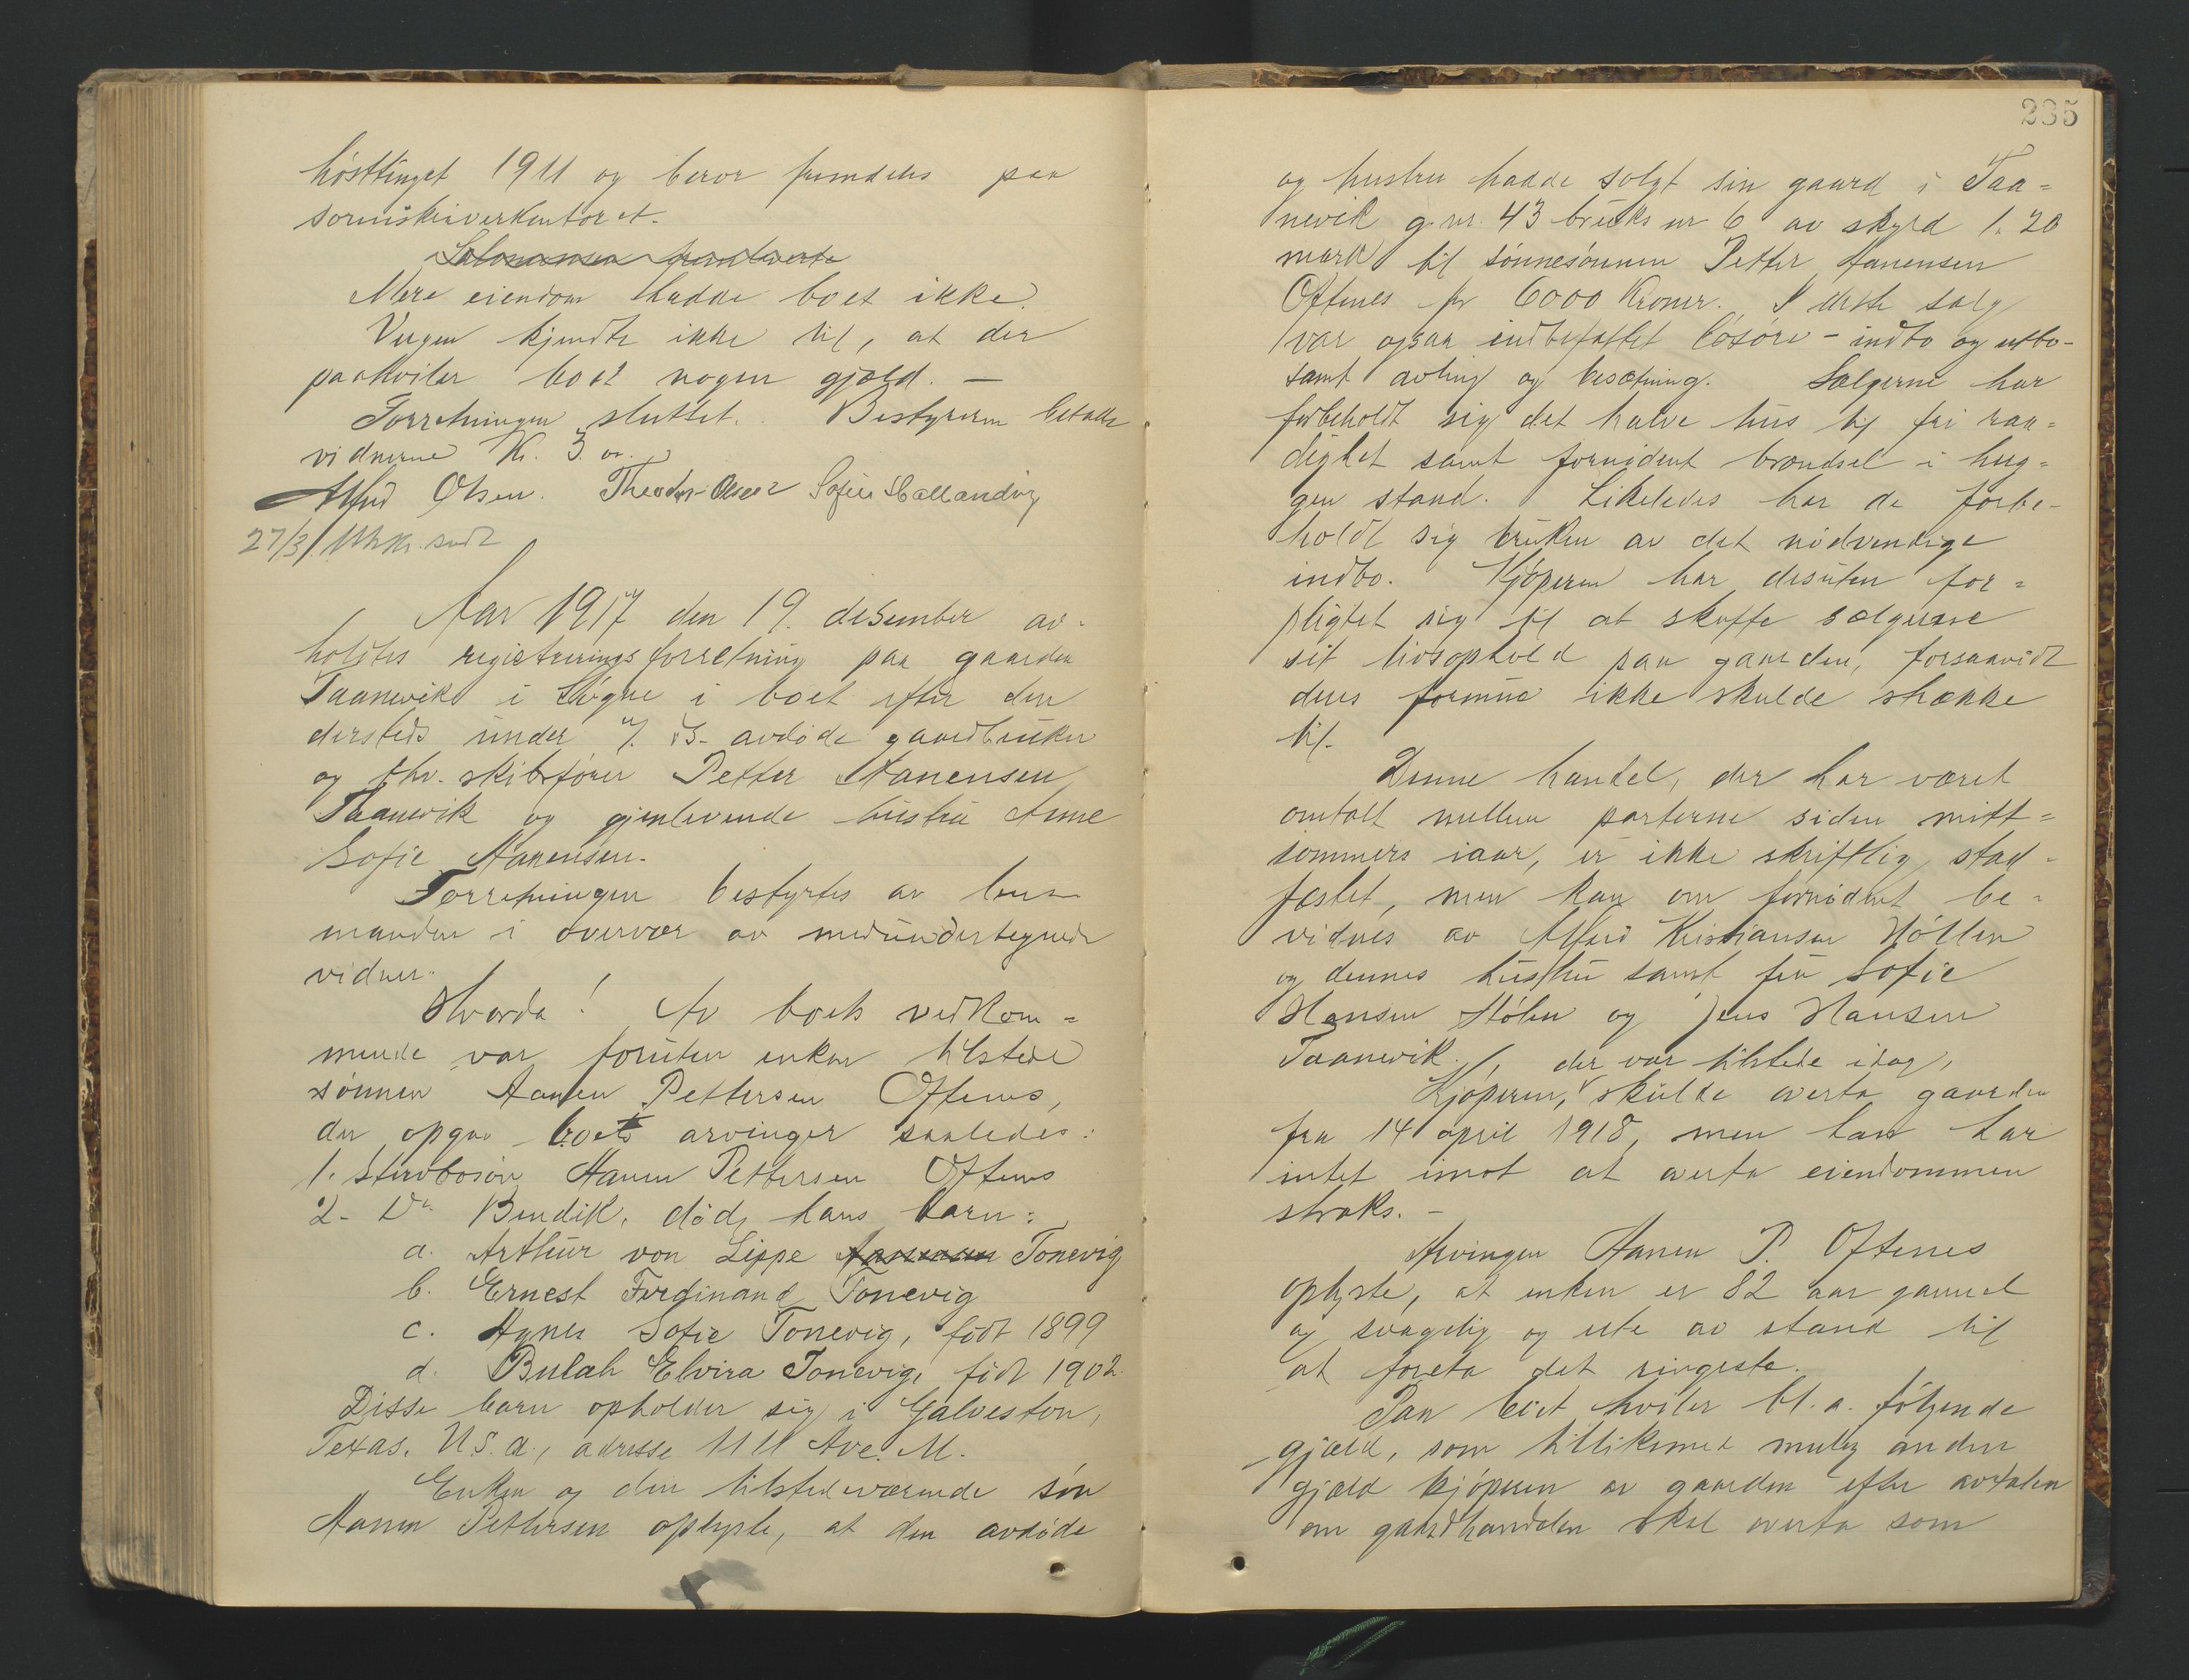 hösttinget 1911 og beror fremdeles paa
sorenskriverkontoret.
Mere eiendom hadde boet ikke.
Vergen kjendte ikke til, at der
paahviler boet nogen gjæld. —
Forretningen sluttet. Bestyreren betalte
vidnerne Kr. 3.00.
Alfred Olsen. Theodor Olsen Sofus Hallandvig
27/3
Aar 1917 den 19. desember av-
holdtes registreringsforretning paa gaarden
Taanevik i Søgne i boet efter den
dersteds under avdøde gaardbruker
og fhv. skibsfører Petter Aanensen
Taanevik og gjenlevende hustru Anne
Sofie Aanensen.
Forretningen bestyrtes av lens-
manden i overvær av medundertegnede
vidner.
Hvorda! Av boets vedkom=
mende var foruten enken tilstede
sønnen Aanen Pettersen Oftenes,
der opgav boets arvinger saaledes:
1. Stervbosøn Aanen Pettersen Oftenes
2. Do Bendik, død, hans barn:
a. Arthur von Lippe Tonevig
b. Ernest Ferdinand Tonevig
c. Agnes Sofie Tonevig, født 1899
d. Bulah Elvira Tonevig, født 1902.
Disse barn opholder sig i Galveston,
Texas. U.S.a., adresse 1111 Ave. M.
Enken og den tilstedeværende søn
Aanen Pettersen oplyste, at den avdøde
235
og hustru hadde solgt sin gaard i Taa=
nevik g nr. 43 bruks nr 6 av skyld 1.20
mark til sønnesønnen Petter Aanensen
Oftenes for 6000 Kroner. I dette salg
var ogsaa indbefattet løsøre - indbo og utbo-
samt avling og besætning. Sælgerne har
forbeholdt sig det halve hus til fri raa=
dighet samt fornødent brændsel i hug=
gen stand. Likeledes har de forbe-
holdt sig bruken av det nødvendige
indbo. Kjøperen har desuten for=
pligtet sig til at skaffe sælgerne
sit livsophold paa gaarden, forsaavidt
deres formue ikke skulde strække
til.
Denne handel, der har været
omtalt mellem parterne siden mitt=
sommers iaar, er ikke skriftlig stad-
fæstet, men kan om fornødent be-
vidnes av Alfred Kristiansen Høllen
og dennes hustru samt fru Sofie
Hansen Hølen og Jens Hansen
Taanevik, der var tilstede idag,
Kjøperen, skulde overta gaarden
fra 14 april 1918, men han har
intet imot at overta eiendommen
straks. -
Arvingen Aanen P. Oftenes
oplyste, at enken er 82 aar gammel
og svagelig og ute av stand til
at foreta det ringeste.
Paa boet hviler bl.a. følgende
gjæld, som tillikemed mulig anden
gjæld kjøperen av gaarden efter avtalen
om gaardhandelen skal overta som